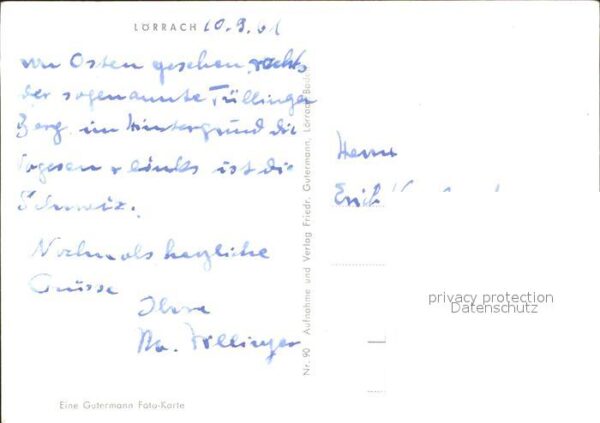 LÖRRACH 10.9.61
von Osten gesehen, rechts
der sogenannte Tüllinger
Berg im Hintergrund die
Vogesen & links ist die
Schweiz.
Nochmals herzliche
Grüsse
Ihre
Herrn
Erich
Nr. 90 Aufnahme und Verlag Friedr. Gutermann, Lörrach-Baden
privacy protection
Datenschutz
Eine Gutermann Foto-Karte